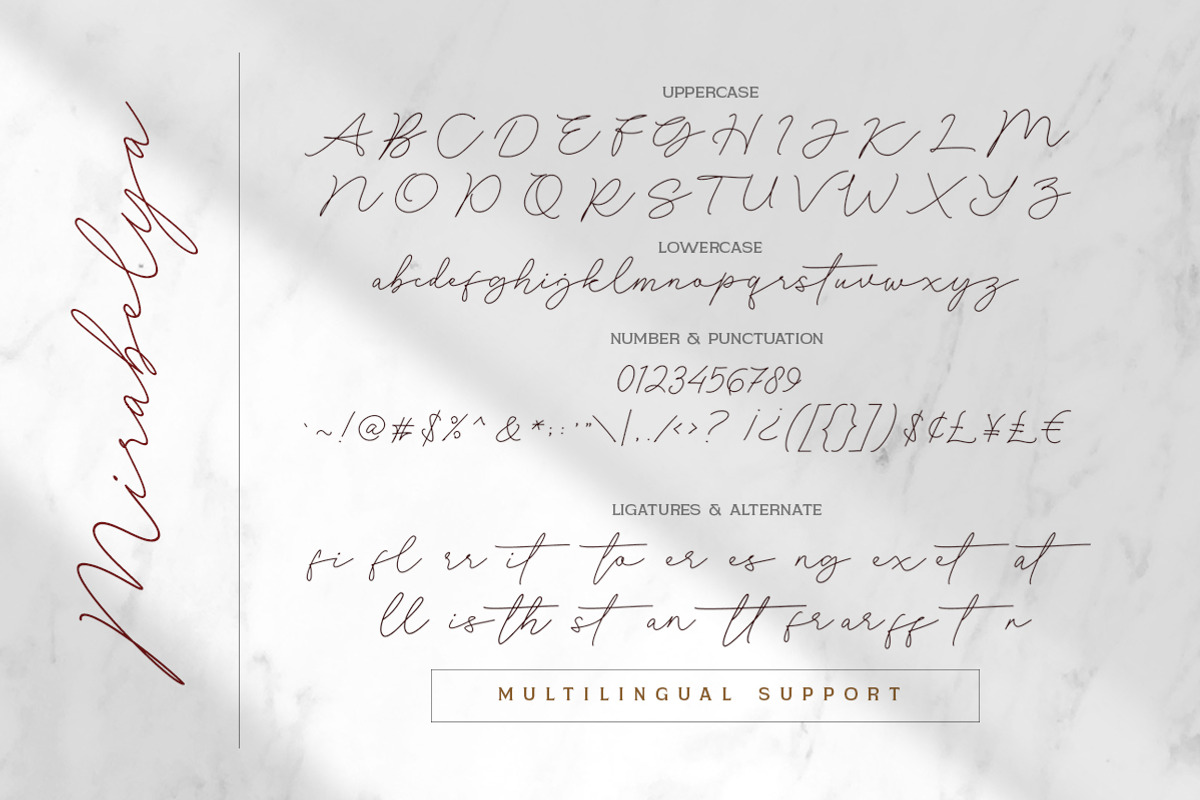 Mirabelya
UPPERCASE
A B C D E F G H I J K L M
N O P Q R S T U V W X Y Z
LOWERCASE
abcdefghijklmnopqrstuvwxyz
NUMBER & PUNCTUATION
0123456789
`~!@#$%^&*;:'"\|,./<>?¡¿([{}])$¢£¥₤€
LIGATURES & ALTERNATE
fi fl rr it to er es ng ex et at
ll is th st an tt fr ar ff t r
MULTILINGUAL SUPPORT